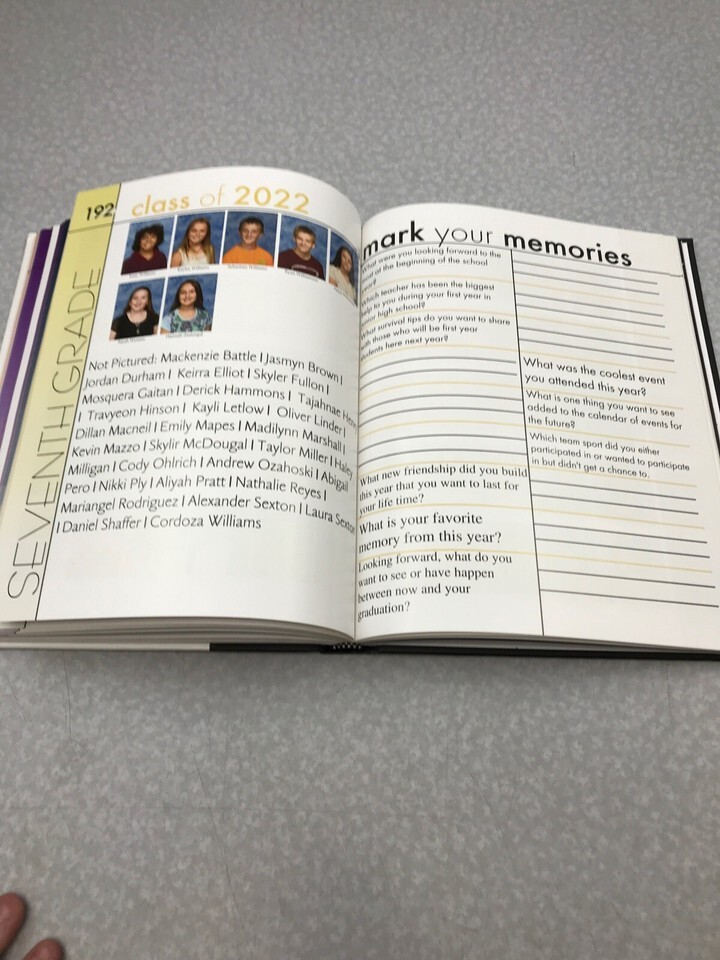 192
class of 2022
SEVENTH GRADE
Not Pictured: Mackenzie Battle I Jasmyn Brown I
Jordan Durham I Keirra Elliot I Skyler Fullon I
Mosquera Gaitan I Derick Hammons I Tajahnae
I Travyeon Hinson I Kayli Letlow I Oliver Linder I
Dillan Macneil I Emily Mapes I Madilynn Marshall I
Kevin Mazzo I Skylir McDougal I Taylor Miller I Haley
Milligan I Cody Ohlrich I Andrew Ozahoski I Abigail
Pero I Nikki Ply I Aliyah Pratt I Nathalie Reyes I
Mariangel Rodriguez I Alexander Sexton I Laura Sexton
I Daniel Shaffer I Cordoza Williams
mark your memories
What were you looking forward to the
at the beginning of the school
year?
Which teacher has been the biggest
help to you during your first year in
junior high school?
What survival tips do you want to share
with those who will be first year
students here next year?
What new friendship did you build
this year that you want to last for
your life time?
What is your favorite
memory from this year?
Looking forward, what do you
want to see or have happen
between now and your
graduation?
What was the coolest event
you attended this year?
What is one thing you want to see
added to the calendar of events for
the future?
Which team sport did you either
participated in or wanted to participate
in but didn't get a chance to.